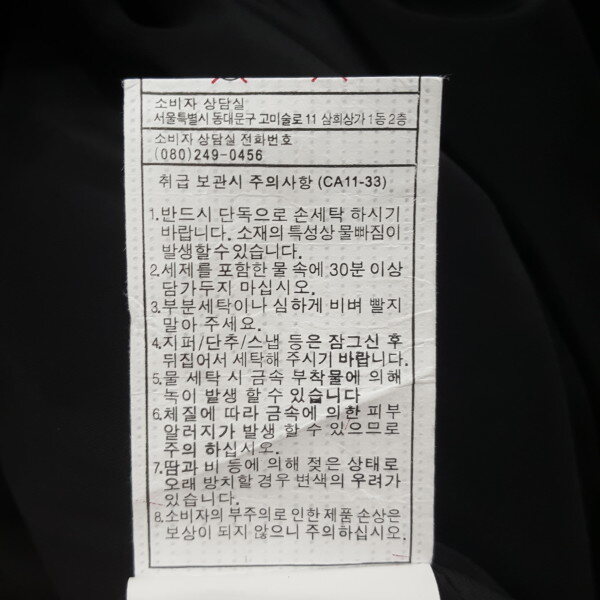 소비자 상담실
서울특별시 동대문구 고미술로 11 삼희상가 1동 2층
소비자 상담실 전화번호
(080)249-0456
취급 보관시 주의사항 (CA11-33)
1.반드시 단독으로 손세탁 하시기
바랍니다. 소재의 특성상 물빠짐이
발생할수있습니다.
2.세제를 포함한 물 속에 30분 이상
담가두지 마십시오.
3.부분세탁이나 심하게 비벼 빨지
말아 주세요.
4.지퍼/단추/스냅 등은 잠그신 후
뒤집어서 세탁해 주시기 바랍니다.
5.물 세탁 시 금속 부착물에 의해
녹이 발생 할 수 있습니다
6.체질에 따라 금속에 의한 피부
알러지가 발생 할 수 있으므로
주의 하십시오.
7.땀과 비 등에 의해 젖은 상태로
오래 방치할 경우 변색의 우려가
있습니다.
8.소비자의 부주의로 인한 제품 손상은
보상이 되지 않으니 주의하십시오.